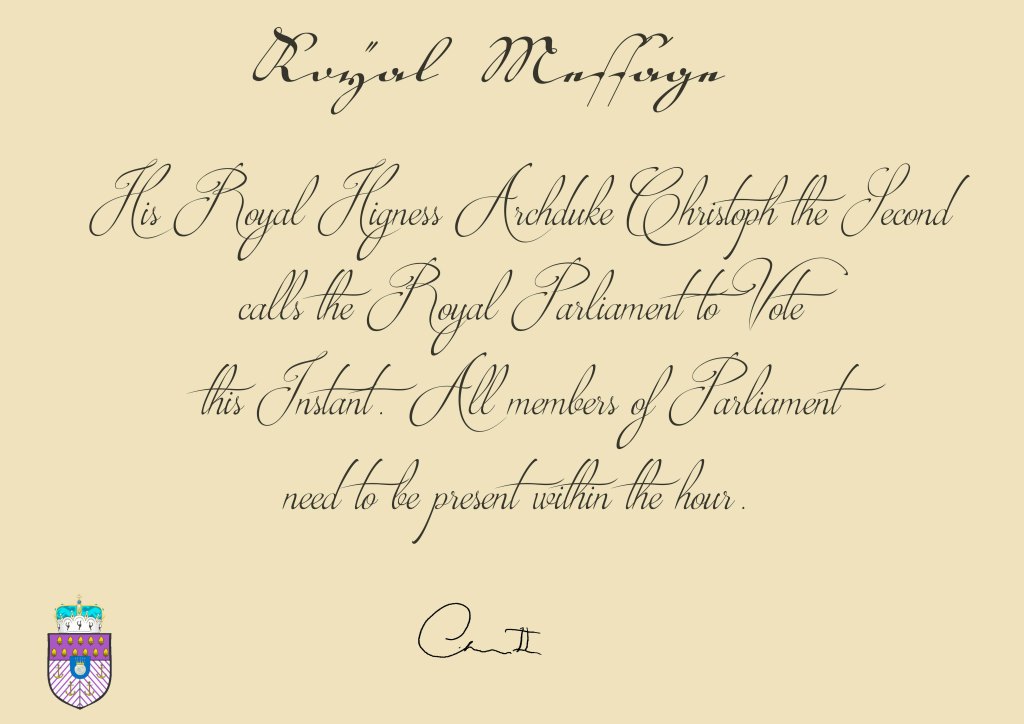 Royal Message
His Royal Higness Archduke Christoph the Second
calls the Royal Parliament to Vote
this Instant. All members of Parliament
need to be present within the hour.